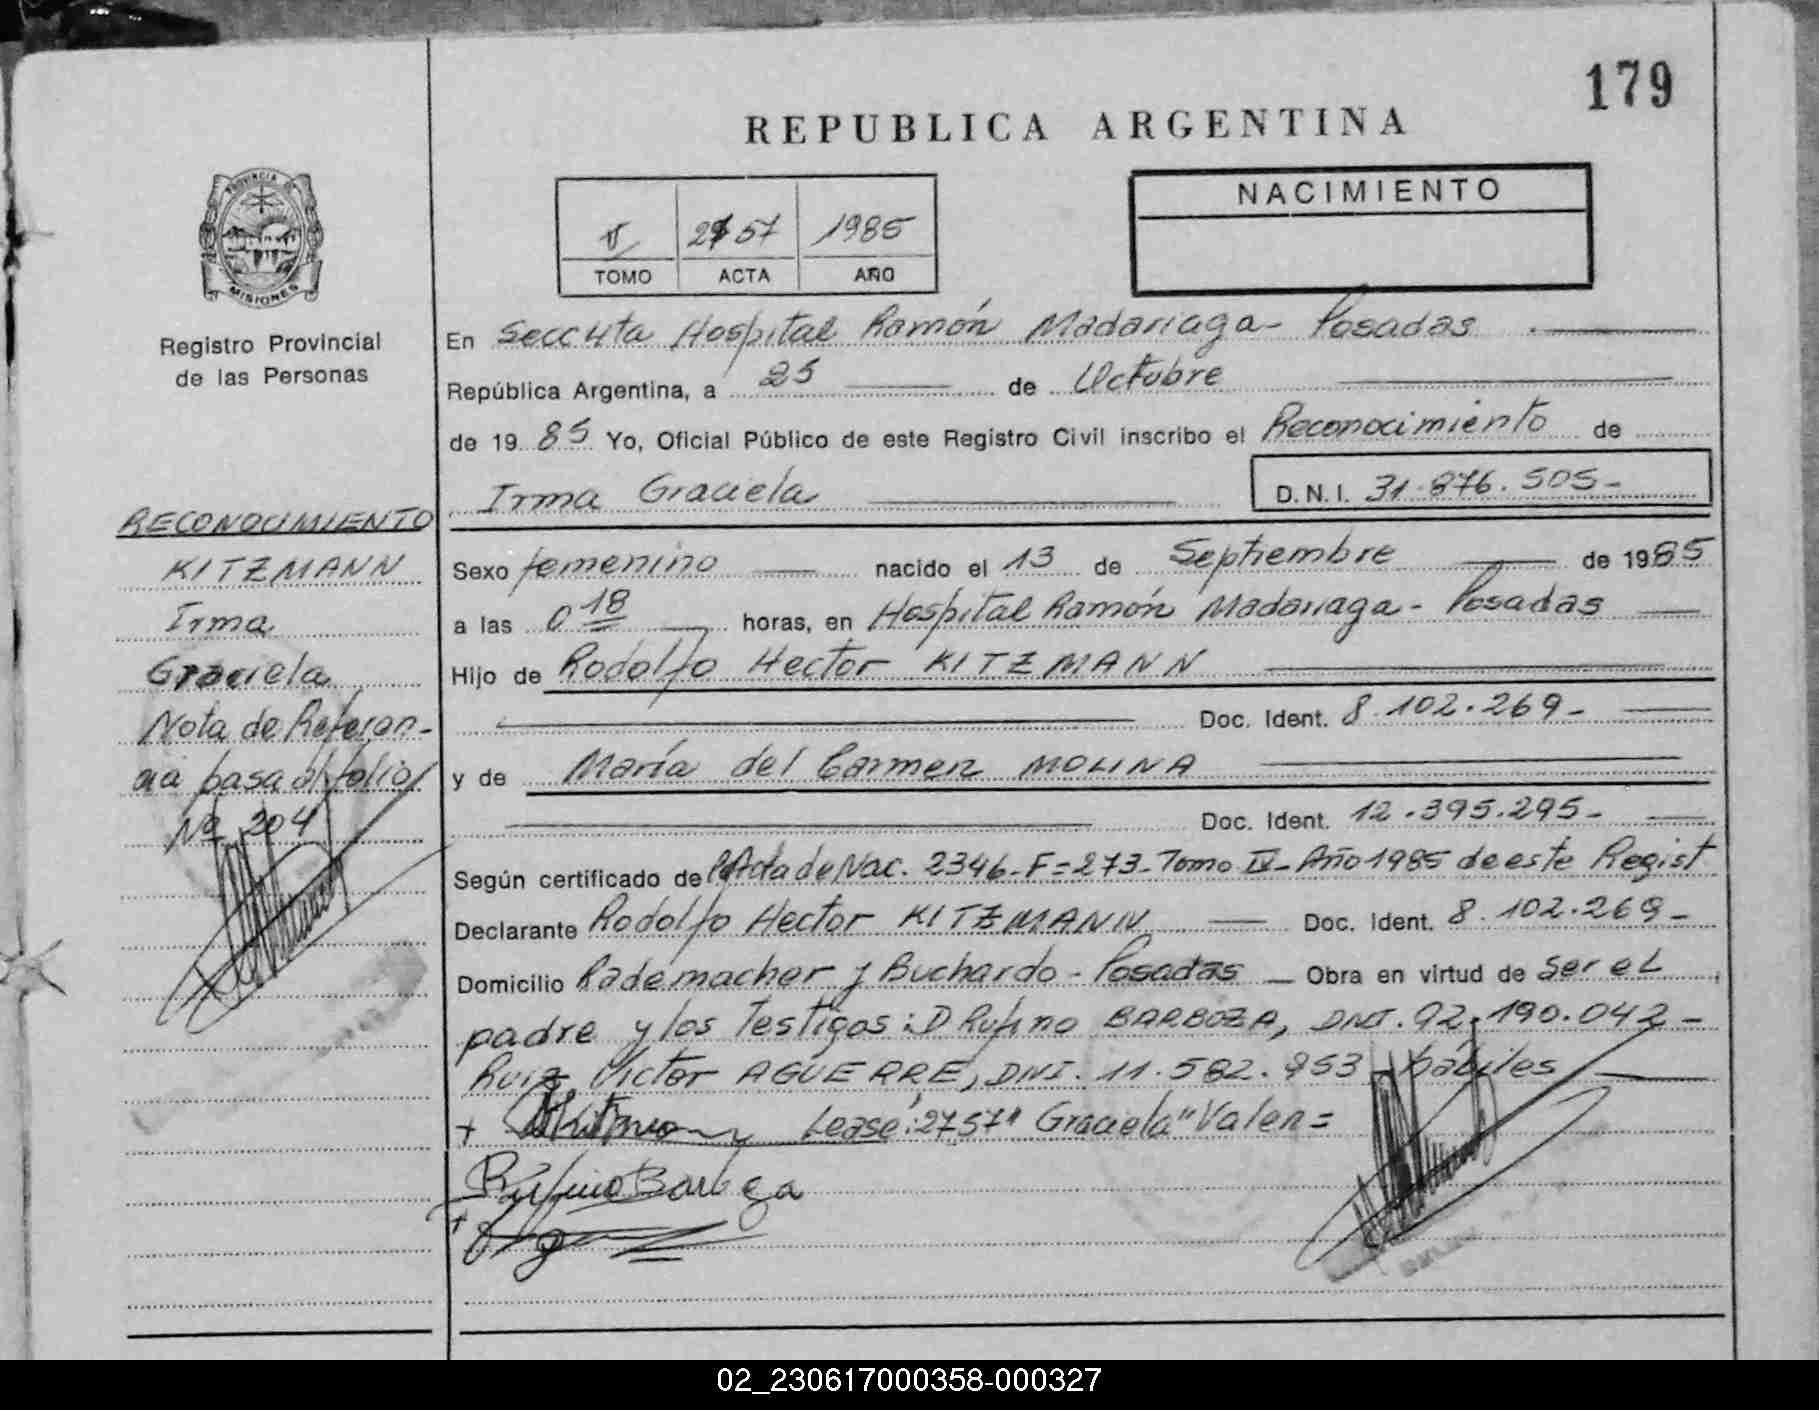 179
REPUBLICA ARGENTINA
PROVINCIA D
MISIONES
Registro Provincial
de las Personas
V 2757 1985
TOMO ACTA AÑO
NACIMIENTO
En Secc 4ta Hospital Ramón Madariaga - Posadas
República Argentina, a 25 de Octubre
de 19 85 Yo, Oficial Público de este Registro Civil inscribo el Reconocimiento de
Irma Graciela D.N.I. 31.876.505-
Sexo femenino nacido el 13 de Septiembre de 1985
a las 0 18 horas, en Hospital Ramón Madariaga - Posadas
Hijo de Rodolfo Hector KITZMANN
Doc. Ident. 8.102.269-
y de María del Carmen MOLINA
Doc. Ident. 12.395.295-
Según certificado de Acta de Nac. 2346-F=273-Tomo IV-Año 1985 de este Regist
Declarante Rodolfo Hector KITZMANN Doc. Ident. 8.102.269-
Domicilio Rademacher y Buchardo - Posadas - Obra en virtud de ser el
padre y los testigos: D Rufino BARBOZA, DNI. 92.190.042-
Ruiz Victor AGUERRE, DNI. 11.582.953 - hábiles
+ Lease: 2757" Graciela" Valen=
Rufino Barboza
+
RECONOCIMIENTO
KITZMANN
Irma
Graciela
Nota de Referen-
cia pasa al folio
Nº 204
02_230617000358-000327